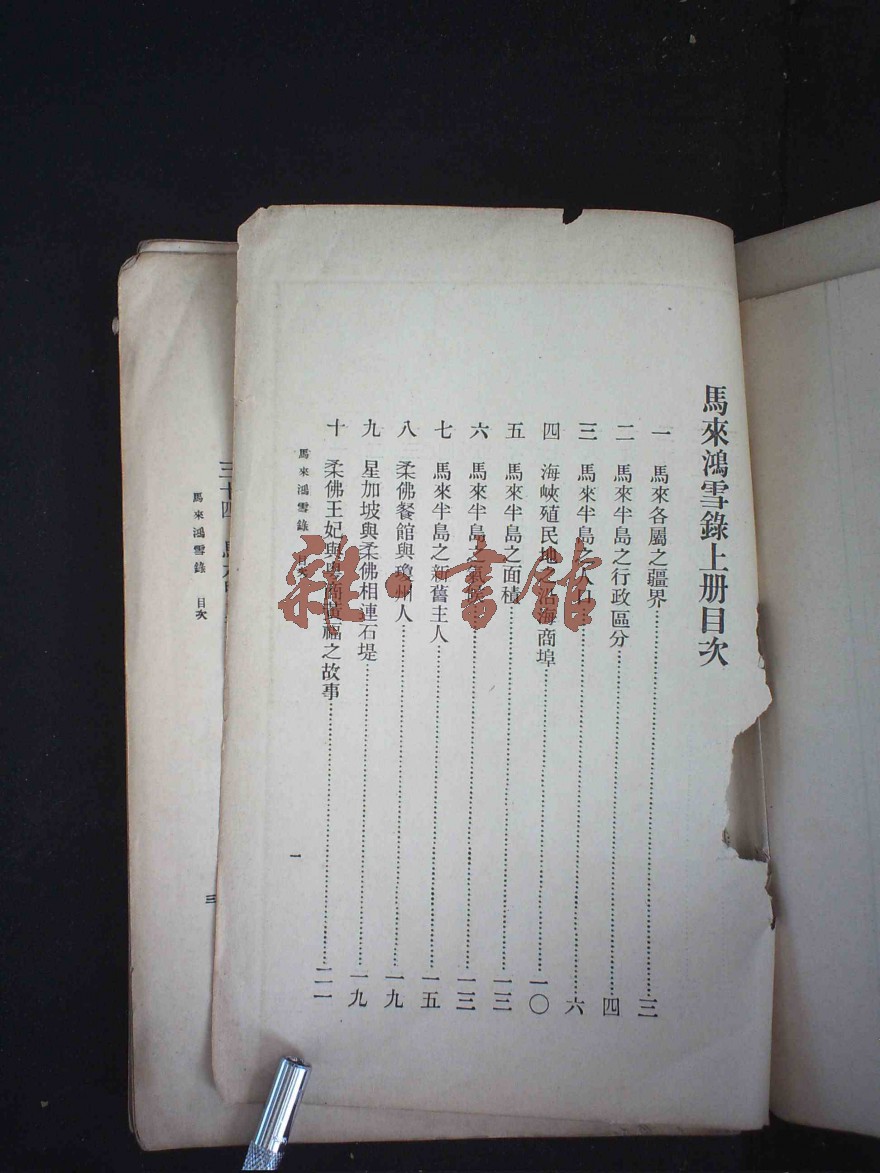 馬來鴻雪錄上册目次
一 馬來各屬之疆界 三
二 馬來半島之行政區分 四
三 馬來半島之人口 六
四 海峽殖民地之沿海商埠 一〇
五 馬來半島之面積 一三
六 馬來半島之氣候 一三
七 馬來半島之新舊主人 一五
八 柔佛餐館與瓊州人 一九
九 星加坡與柔佛相連石堤 一九
十 柔佛王妃與粵商黃福之故事 二一
馬來鴻雪錄 目次
一
三十四
馬來鴻雪錄 目次
三
雜·書館